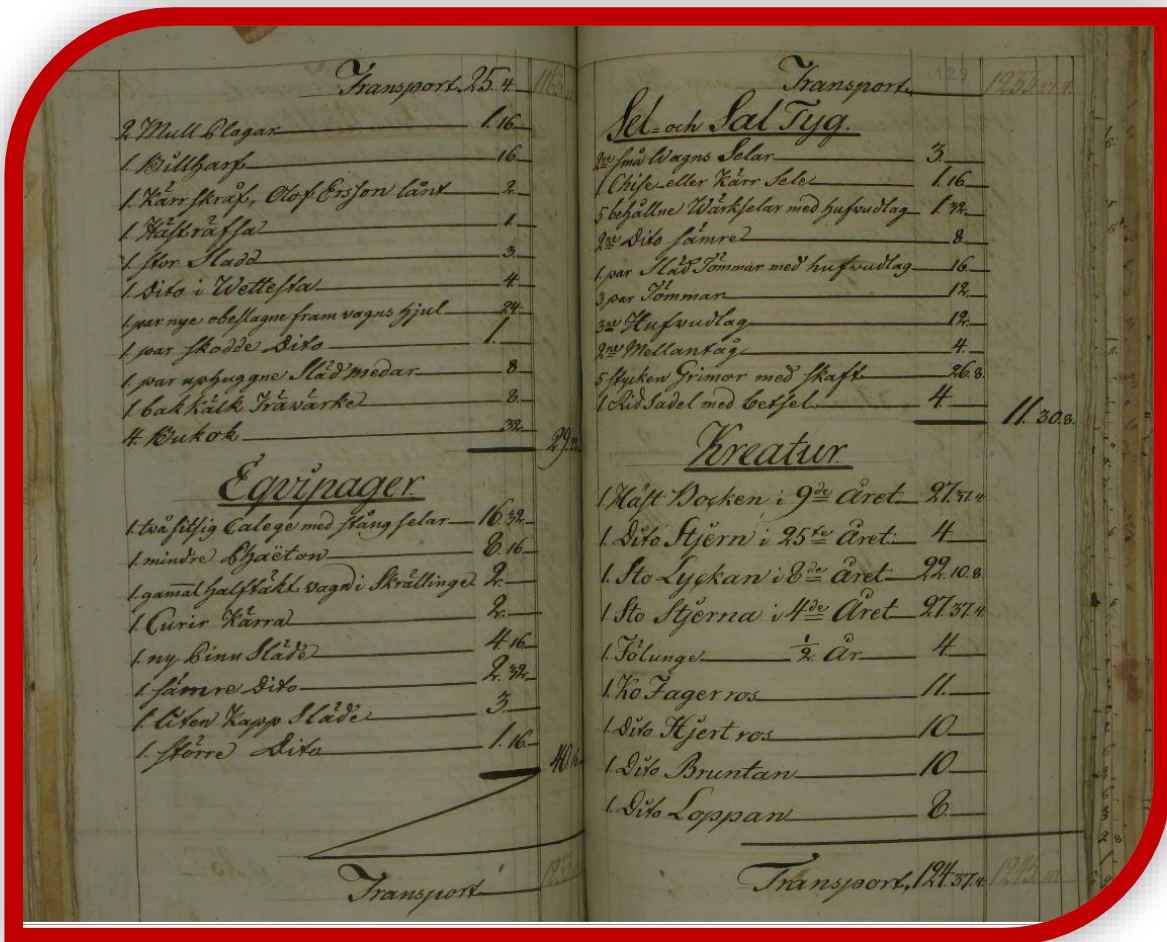 Transport 25. 4. 1163
2 Mull Plogar 1. 16.
1. Billharf 16.
1. Kärrskråf, Olof Ersson lånt 2.
1. Hästräfsa 1.
1. stor Sladd 3.
1. Dito i Wettesta 4
1. par nye obeslagne fram vagns hjul 24.
1. par skodde Dito 1.
1. par uphuggne Slädmedar 8.
1. bak kälk Träwärke 8.
4. Bukok 32.
29.
Eqvipager.
1. två sitsig Calege med stång selar 16. 32.
1. mindre Phaëton 8. 16.
1. gammal halftäkt vagn i Skrällinge 2.
1. Curir Kärra 2.
1. ny Pinn Släde 4. 16.
1. sämre Dito 2. 32.
1. liten Kapp Släde 3.
1. större Dito 1. 16.
40. 16.
Transport
Transport 1233
Sel- och Sal Tyg.
2ne små Wagns Selar 3.
1. Chise eller Kärr Sele 1. 16.
5 behållne Wärkselar med hufwudlag 1. 32.
2ne Dito sämre 8.
1. par Släd Tömmar med hufwudlag 16.
3 par Tömmar 12.
3ne Hufwudlag 12.
2ne Mellantåg 4.
5 stycken Grimor med skaft 26. 8.
1. Rid Sadel med betsel 4
11. 30. 8.
Kreatur.
1. Häst Docken i 9de Året 27. 37. 4
1. Dito Stjern i 25te Året 4
1. Sto Lyckan i 8de Året 22. 10. 8.
1. Sto Stjerna i 4de Året 27. 37. 4
1. Fölunge 1/2 År 4
1. Ko Fagerros 11.
1. Dito Hjertros 10.
1. Dito Bruntan 10
1. Dito Loppan 8.
Transport 124. 37. 4 1245